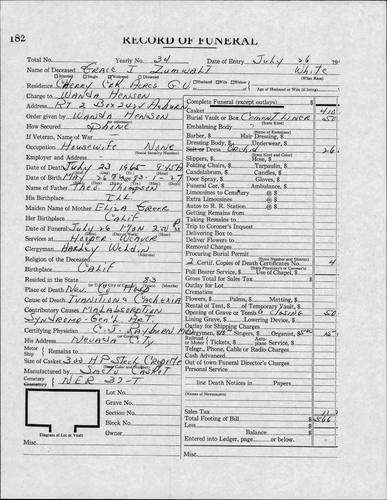 182
RECORD OF FUNERAL
Total No. Yearly No. 34 Date of Entry July 26 19
Name of Deceased Grace I Zumwalt White
Married Single Widowed Divorced (What Race)
Residence Cherry Crk Acres G.V. Husband Wife Widow Age of Husband or Wife (if living)
Charge to Wanda Henson
Address RT 2 Box 242 Auburn
Order given by Wanda Henson
How Secured Phone
If Veteran, Name of War
Occupation Housewife None
(Social Security Number)
Employer and Address
Date of Death July 23 1965
Date of Birth May 26
Name of Father Theo Thompson
His Birthplace Ill
Maiden Name of Mother Eliza Greer
Her Birthplace Calif
Date of Funeral July 26 Mon
Services at Hooper Weaver
Clergyman Harley Weldin
Religion of the Deceased
Birthplace Calif
Resided in the State 83
Place of Death Nev. Co Hosp
Cause of Death Inanition & Cachexia
Contributory Causes Malabsorption
Syndrome
Certifying Physician C.J. Rayburn MD
His Address Nevada City
Motor Ship Remains to
Size of Casket
Manufactured by Casket
Cemetery
Lot No.
Grave No.
Section No.
Block No.
Owner
Diagram of Lot or Vault
Misc.
Complete Funeral (except outlays) $
Casket 410
Burial Vault or Box Cement Liner 50
(State Kind)
Embalming Body
(Name of Embalmer)
Barber, $ Hair Dressing, $
Dressing Body, $ Underwear, $
Suit or Dress Orchid 26
(State Kind and Color)
Slippers, $ Hose, $
Folding Chairs, $ Tarpaulin, $
Candelabrum, $ Candles, $
Door Spray, $ Gloves, $
Funeral Car, $ Ambulance, $
Limousines to Cemetery @ $
Extra Limousines @ $
Autos to R. R. Station @ $
Getting Remains from
Taking Remains to
Trip to Coroner's Inquest
Delivering Box to
Deliver Flowers to
Removal Charges
Procuring Burial Permit
(State Number and District)
2 Certif. Copies of Death Certificates No. 4
(State Physician's or Coroner's)
Pall Bearer Service, $ Use of Chapel, $
Gross Total for Sales Tax $
Outlay for Lot
Cremation
Flowers, $ Palms, $ Matting, $
Rental of Tent, $ of Temporary Vault, $
Opening of Grave or Tomb & Closing 50
Lining Grave, $ Lowering Device, $
Outlay for Shipping Charges
Clergymen, $ Singers, $ Organist, $ 15
Railroad or Motor $ Tickets, $ Aeroplane Service, $
Telegr., Phone, Cable or Radio Charges
Cash Advanced
Out of town Funeral Director's Charges
Personal Service
line Death Notices in Papers
(Names of Newspapers)
Sales Tax 11
Total Footing of Bill $ 566
Less $
Balance $
Entered into Ledger, page or below.
Misc.